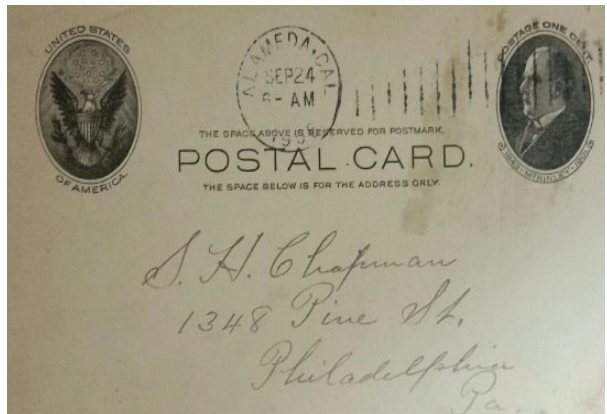 UNITED STATES
OF AMERICA.
ALAMEDA, CAL.
SEP 24
6 - AM
POSTAGE ONE CENT.
1843 - McKINLEY - 1901
THE SPACE ABOVE IS RESERVED FOR POSTMARK.
POSTAL CARD.
THE SPACE BELOW IS FOR THE ADDRESS ONLY.
S. H. Chapman
1348 Pine St.
Philadelphia
Pa